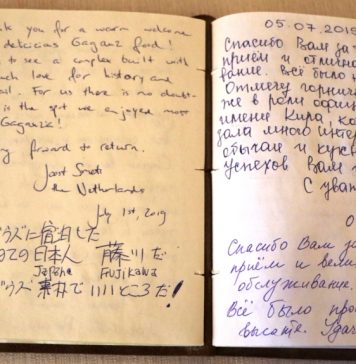 you for a warm welcome
delicious Gagauz food!
to see a complex built with
much love for history and
For us there is no doubt
is the spot we enjoyed most
Gagauzia!
forward to return.
Joost
the Netherlands
July 1st, 2019
ウズに宿泊した
ての日本人 藤川だ
Japane FUJIKAWA
ウズ で いいところだ!
05.07.2019
Спасибо Вам за
приём и отличное
вание. Всё было
Отмечу горничную
же в роли офици
имени Кира,
зала много интер
обычаи и кухн
Успехов Вам
С уваж
Спасибо Вам за
приём и вели
обслуживание.
Всё было про
высоте. Удач